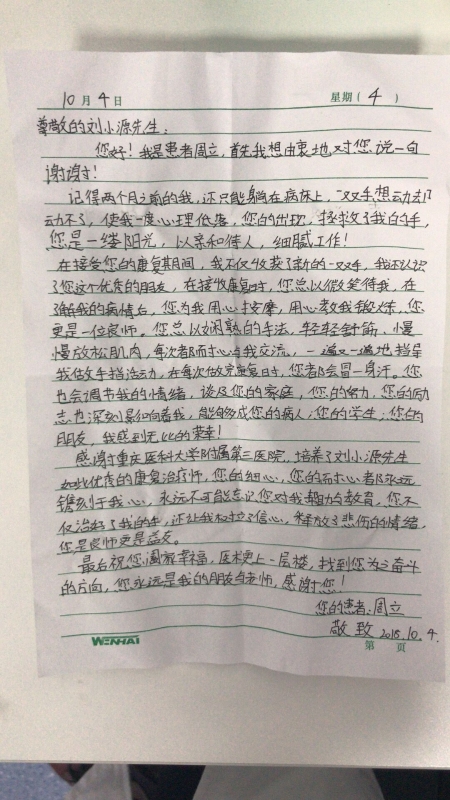 10月4日 星期(4)
尊敬的刘小源先生:
您好!我是患者周立,首先我想由衷地对您说一句
谢谢!
记得两个月之前的我,还只能躺在病床上,一双手想动却
动不了,使我一度心理低落,您的出现,拯救了我的手,
您是一缕阳光,以亲和待人,细腻工作!
在接受您的康复期间,我不仅收获了新的一双手,我还认识
了您这个优秀的朋友,在接收康复时,您总以微笑待我,在
了解我的病情后,您为我用心按摩,用心教我锻炼,您
更是一位良师。您总以娴熟的手法,轻轻舒筋,慢
慢放松肌肉,每次都耐心与我交流,一遍又一遍地指导
我做手指活动,在每次做完康复时,您都会冒一身汗。您
也会调节我的情绪,谈及您的家庭,您的努力,您的励
志也深刻影响着我,能够成您的病人,您的学生,您的
朋友,我感到无比的荣幸!
感谢重庆医科大学附属第三医院,培养了刘小源先生
如此优秀的康复治疗师,您的细心,您的耐心都永远
镌刻于我心,永远不可能忘记您对我的教育,您不
仅治好了我的手,还让我树立了信心,释放了悲伤的情绪,
您是良师更是益友。
最后祝您阖家幸福,医术更上一层楼,找到您为之奋斗
的方向,您永远是我的朋友与老师,感谢您!
您的患者:周立
敬致 2018.10.4.
WENHAI 第 页